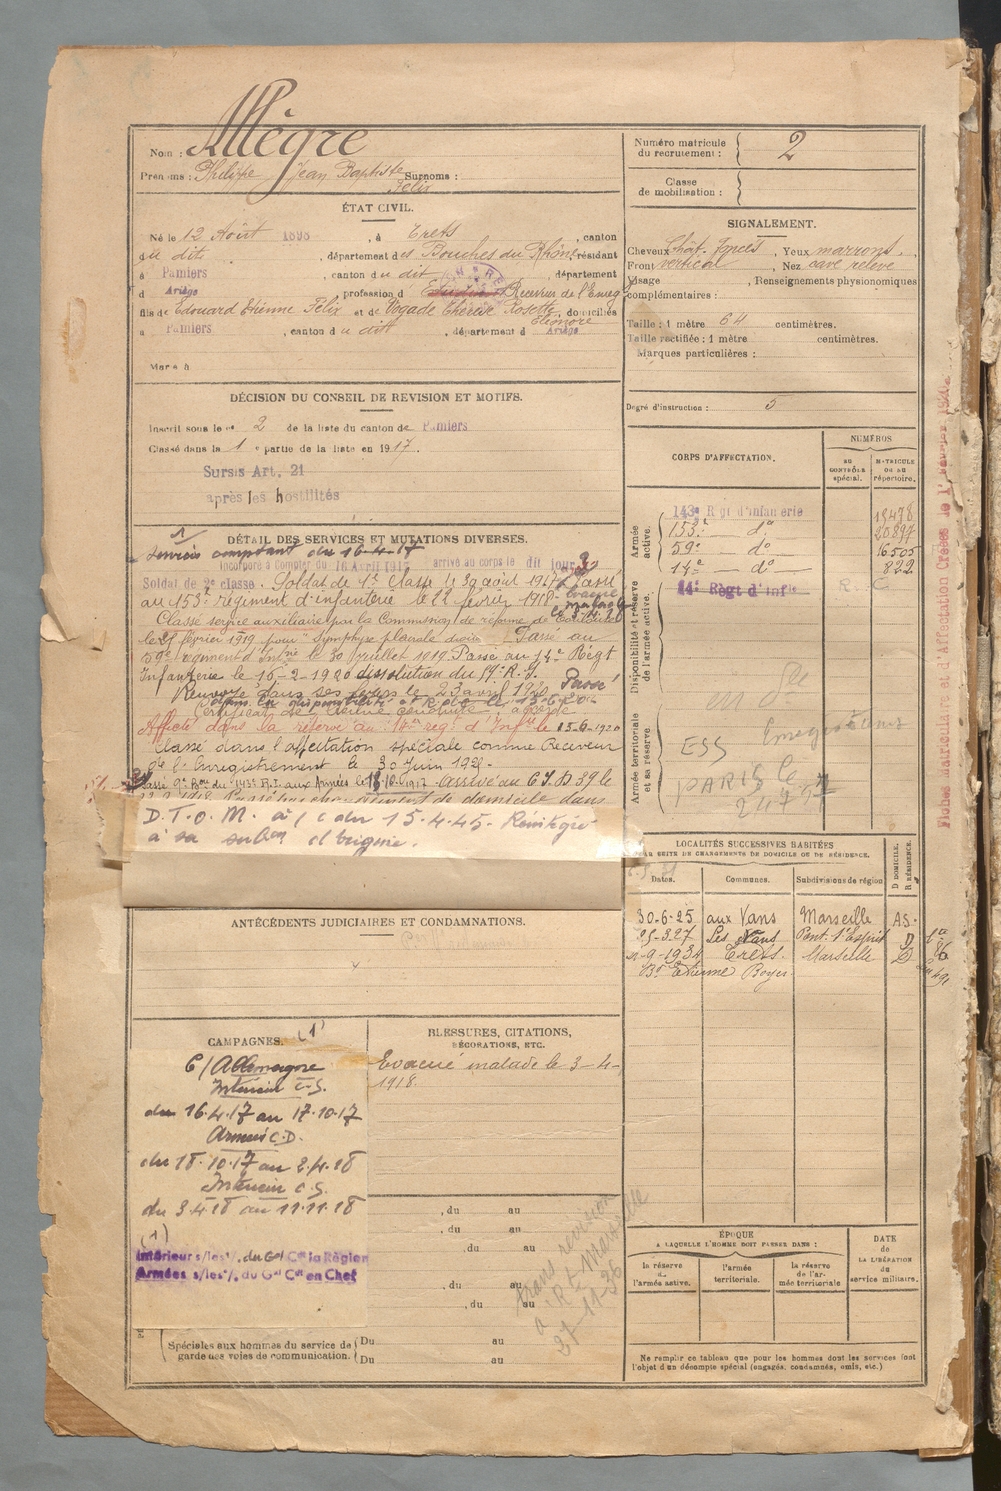 Nom : Allègre
Prénoms : Philippe Jean Baptiste Surnoms :
Félix
ÉTAT CIVIL.
Né le 12 Août 1898, à Trets, canton
du dit, département des Bouches du Rhône, résidant
à Pamiers, canton du dit, département
d Ariège, profession d Receveur de l'Enreg
fils de Edouard Etienne Félix et de Vogade Thérèse Rosette, domiciliés
Eléonore
à Pamiers, canton du dit, département d Ariège
Marié à
DÉCISION DU CONSEIL DE REVISION ET MOTIFS.
Inscrit sous le no 2 de la liste du canton de Pamiers
Classé dans la 1e partie de la liste en 1917.
Sursis Art. 21
après les hostilités
1
DÉTAIL DES SERVICES ET MUTATIONS DIVERSES.
Services comptant du 16-4-17
Incorporé à Compter du 16 Avril 1917 arrivé au corps le dit jour
Soldat de 2e classe. Soldat de 1e Classe le 30 août 1917 Passé
au 153e régiment d'infanterie le 22 février 1918 - Evacué
malade
le 3.4.18
Classé service auxiliaire par la Commission de réforme de Toulouse
le 25 février 1919 pour "Symphyse pleurale droite" Passé au
59e régiment d'Infrie le 30 juillet 1919 Passé au 14e Régt
Infanterie le 16-2-1920 dissolution du 14e R.I.
Renvoyé dans ses foyers le 23 avril 1920 Passé
dans la disponibilité et R.de le 15.6.20
Certificat de bonne conduite accordé
Affecté dans la réserve au 14e régt d'Infie le 15-6-1920
Classé dans l'affectation spéciale comme Receveur
de l'Enregistrement le 30 Juin 1921-
Passé 9e Bon du 143e R.I. aux Armées le 18-10-1917 - arrivé au C.I.D 39 le
Passé par changement de domicile dans
D.T.O.M. à/c du 15.4.45. Réintégré
à sa subon d'origine.
ANTÉCÉDENTS JUDICIAIRES ET CONDAMNATIONS.
CAMPAGNES. (1)
C/Allemagne
Intérieur C.S.
du 16.4.17 au 17.10.17
Armées C.D.
du 18.10.17 au 2.4.18
Intérieur C.S.
du 3.4.18 au 11.11.18
(1)
Intérieur s/les o/. du Gal Ct la Région
Armées s/les o/. du Gal Ct en Chef
BLESSURES, CITATIONS,
DÉCORATIONS, ETC.
Evacué malade le 3-4-
1918.
, du au
, du au
, du au
, du au
, du au
trans revision
à Rt Marseille
27-11-36
Spéciales aux hommes du service de
garde des voies de communication.
Du au
Du au
Numéro matricule
du recrutement : 2
Classe
de mobilisation :
SIGNALEMENT.
Cheveux Chat. foncés, Yeux marrons,
Front vertical, Nez cave relevé
Visage , Renseignements physionomiques
complémentaires :
Taille : 1 mètre 64 centimètres.
Taille rectifiée : 1 mètre centimètres.
Marques particulières :
Degré d'instruction : 5
CORPS D'AFFECTATION.
NUMÉROS
AU CONTRÔLE spécial.
MATRICULE OU AU répertoire.
Armée active.
143e Rgt d'infanterie 18478
153e do 20897
59e do 16505
14e do 822
Disponibilité et réserve de l'armée active.
14e Régt d'Infie R. C.
Armée territoriale et sa réserve
ESS Enregistrement
PARIS le
LOCALITÉS SUCCESSIVES HABITÉES
PAR SUITE DE CHANGEMENTS DE DOMICILE OU DE RÉSIDENCE.
Dates. Communes. Subdivisions de région D DOMICILE. R RÉSIDENCE.
30-6-25 aux Vans Marseille AS.
25-3.27 Les Vans Pont-St Esprit D
9-1934 Trets. Marseille D
Bd Etienne Boyer
ÉPOQUE
A LAQUELLE L'HOMME DOIT PASSER DANS :
la réserve de l'armée active.
l'armée territoriale.
la réserve de l'armée territoriale
DATE de LA LIBÉRATION du service militaire.
Ne remplir ce tableau que pour les hommes dont les services font
l'objet d'un décompte spécial (engagés, condamnés, omis, etc.)
Fiches Matriculaire et d'Affectation Créées le 1er